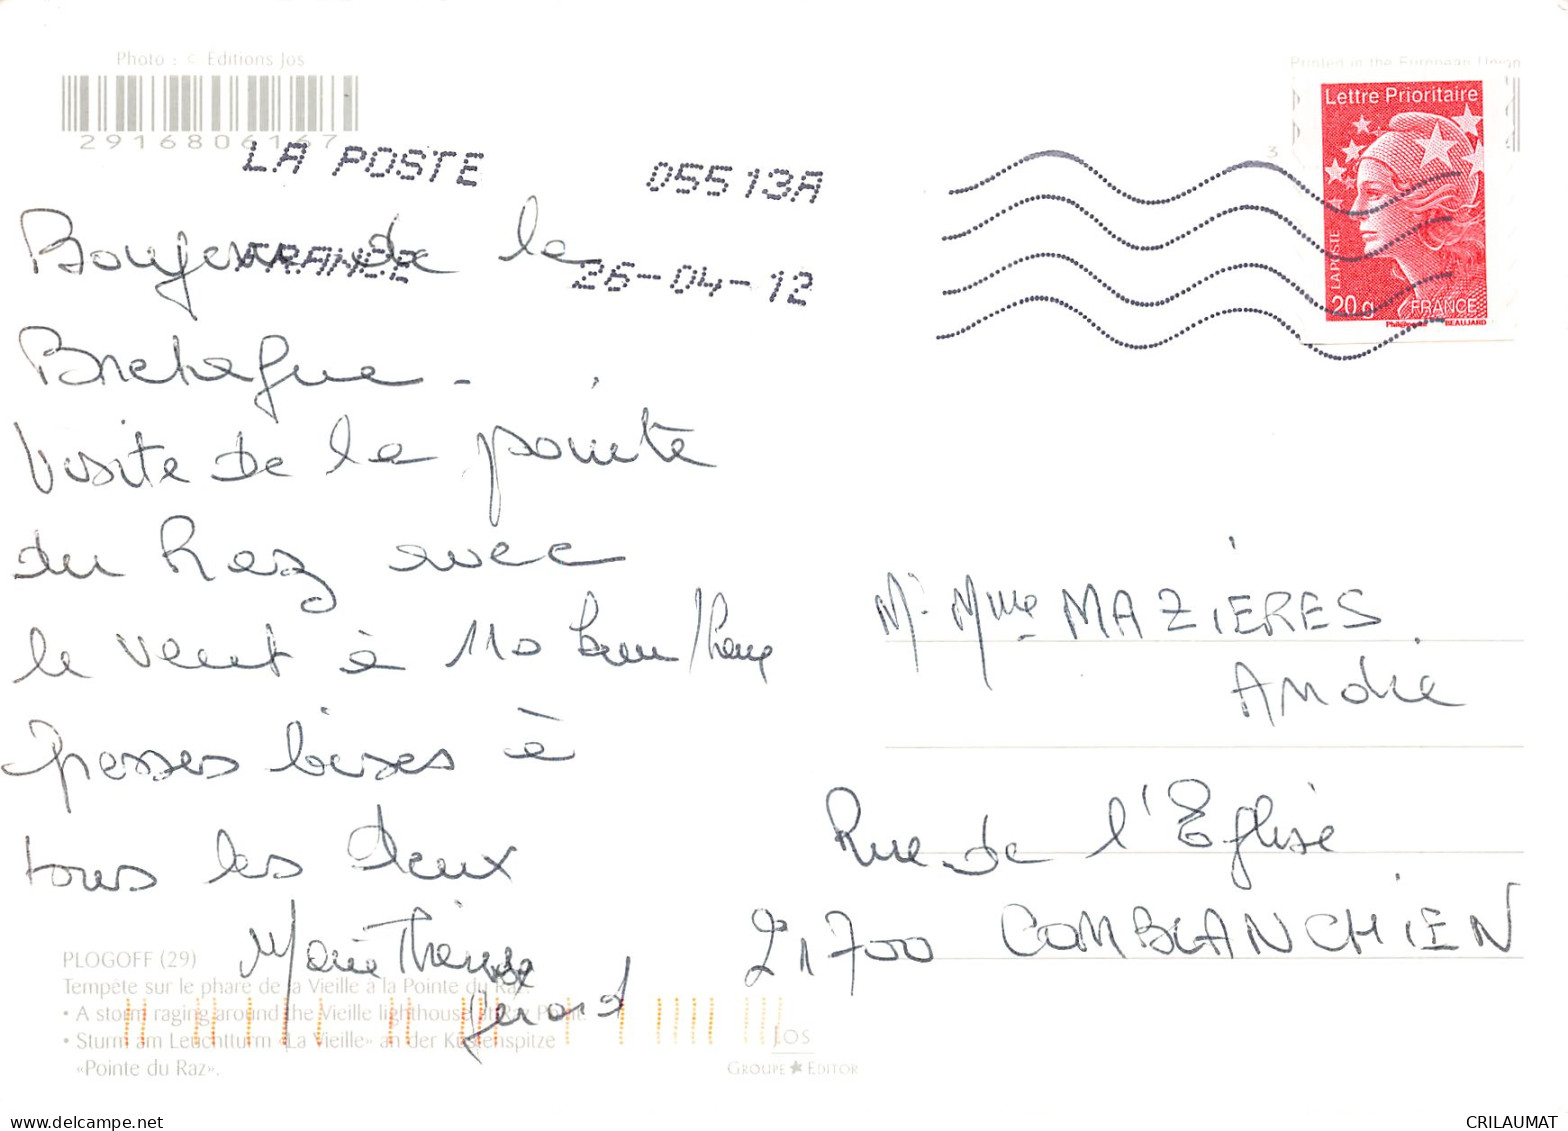 Photo : © Editions Jos
Printed in the European Union
2916806167
Lettre Prioritaire
LA POSTE
20 g
FRANCE
BEAUJARD
3
LA POSTE 05513A
FRANCE 26-04-12
Bonjour de la
Bretagne -
Visite de la pointe
du Raz avec
le vent à 110 km/heure
grosses bises à
tous les deux
Marie Thérèse
et
Gérard
Mr Mme MAZIÈRES
André
Rue de l'Eglise
21700 COMBLANCHIEN
PLOGOFF (29)
Tempête sur le phare de la Vieille à la Pointe du Raz.
• A storm raging around the Vieille lighthouse at Raz Point.
• Sturm am Leuchtturm «La Vieille» an der Küstenspitze
«Pointe du Raz».
JOS
GROUPE EDITOR
www.delcampe.net
CRILAUMAT